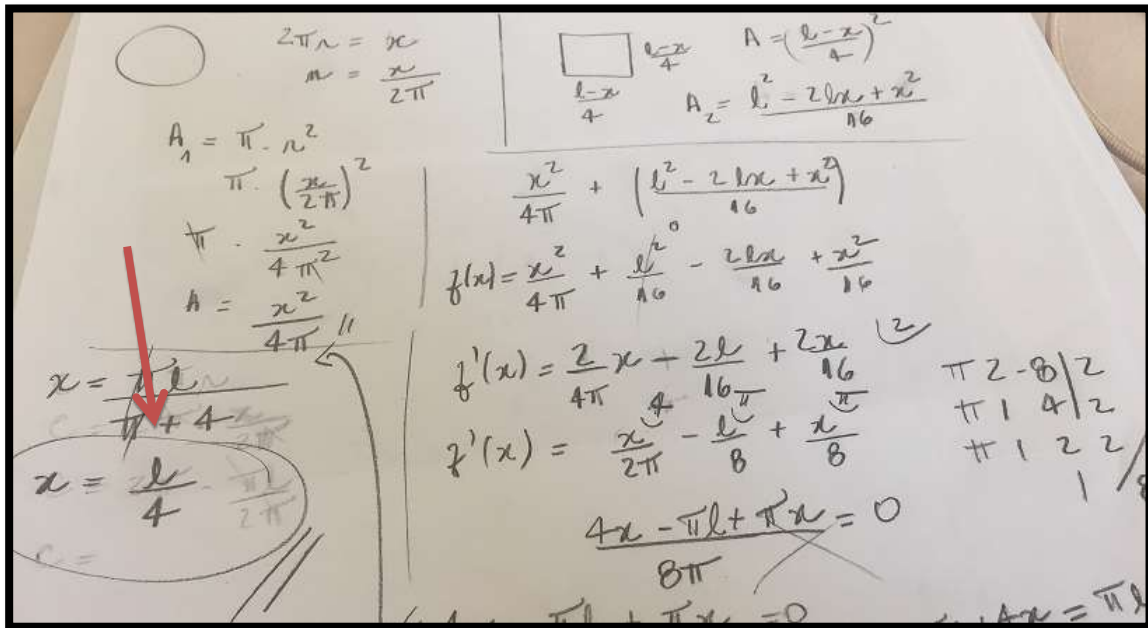 2πr = x
r = x/2π
A₁ = π · r²
π · (x/2π)²
π · x²/4π²
A = x²/4π //
x = πl/π + 4
x = l/4
l-x/4
l-x/4
A = (l-x/4)²
A₂ = l² - 2lx + x²/16
x²/4π + (l² - 2lx + x²/16)
f(x) = x²/4π + l²/16 - 2lx/16 + x²/16
f'(x) = 2/4π x - 2l/16 + 2x/16
f'(x) = x/2π - l/8 + x/8
π 2 - 8 | 2
π 1 4 | 2
π 1 2 2
4x - πl + πx/8π = 0